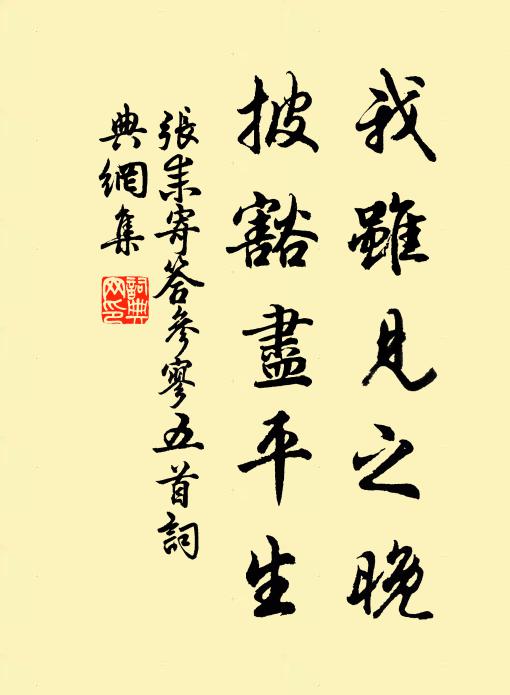 我雖見之晚
披豁盡平生
張耒寄答參寥五首詞
典網集
詞典
網印